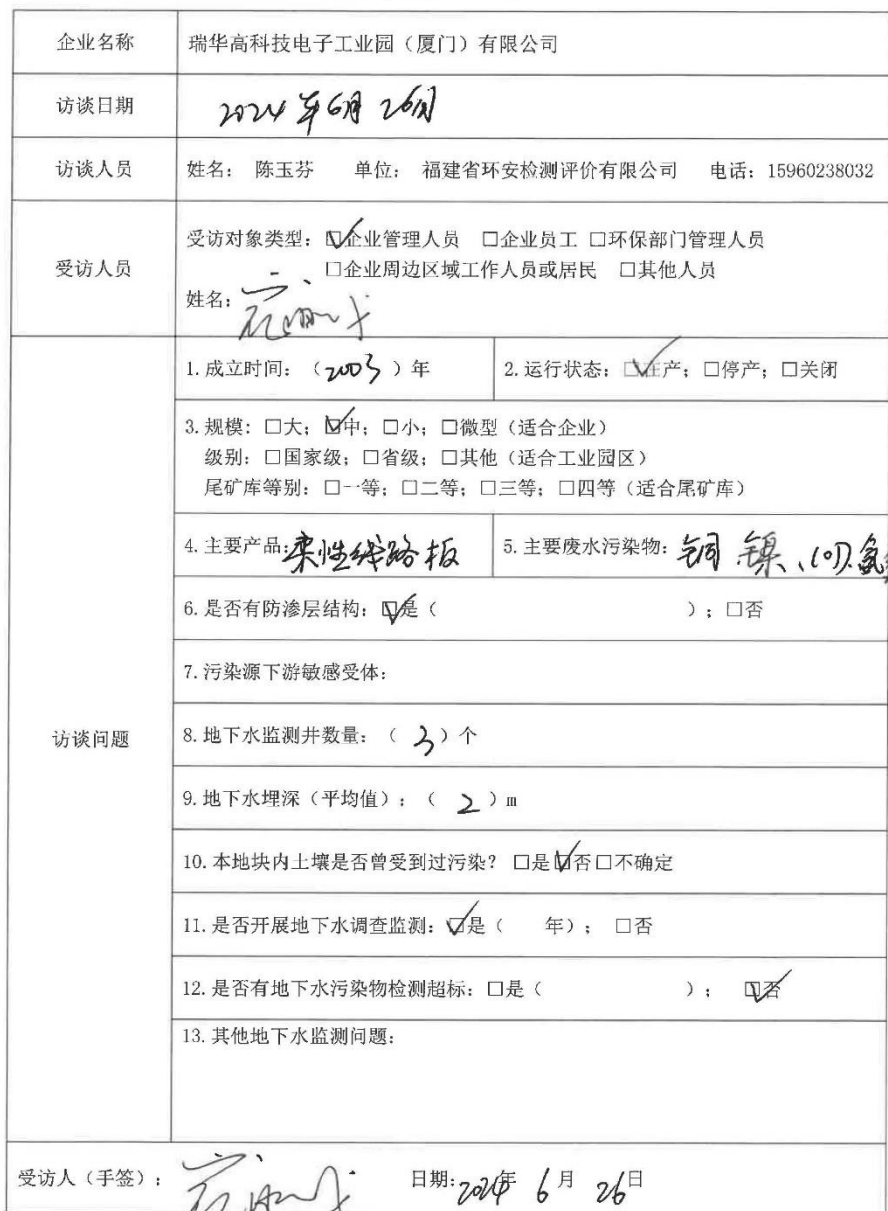 企业名称 瑞华高科技电子工业园（厦门）有限公司
访谈日期 2024年6月26日
访谈人员 姓名： 陈玉芬 单位： 福建省环安检测评价有限公司 电话：15960238032
受访人员
受访对象类型：☑企业管理人员 □企业员工 □环保部门管理人员
□企业周边区域工作人员或居民 □其他人员
姓名：
访谈问题
1.成立时间：（2003）年 2.运行状态：☑在产；□停产；□关闭
3.规模：□大；☑中；□小；□微型（适合企业）
级别：□国家级；□省级；□其他（适合工业园区）
尾矿库等别：□一等；□二等；□三等；□四等（适合尾矿库）
4.主要产品：柔性线路板 5.主要废水污染物：铜 镍、COD.氨
6.是否有防渗层结构：☑是（ ）；□否
7.污染源下游敏感受体：
8.地下水监测井数量：（3）个
9.地下水埋深（平均值）：（2）m
10.本地块内土壤是否曾受到过污染？□是☑否□不确定
11.是否开展地下水调查监测：☑是（ 年）； □否
12.是否有地下水污染物检测超标：□是（ ）； ☑否
13.其他地下水监测问题：
受访人（手签）： 日期：2024年 6月 26日